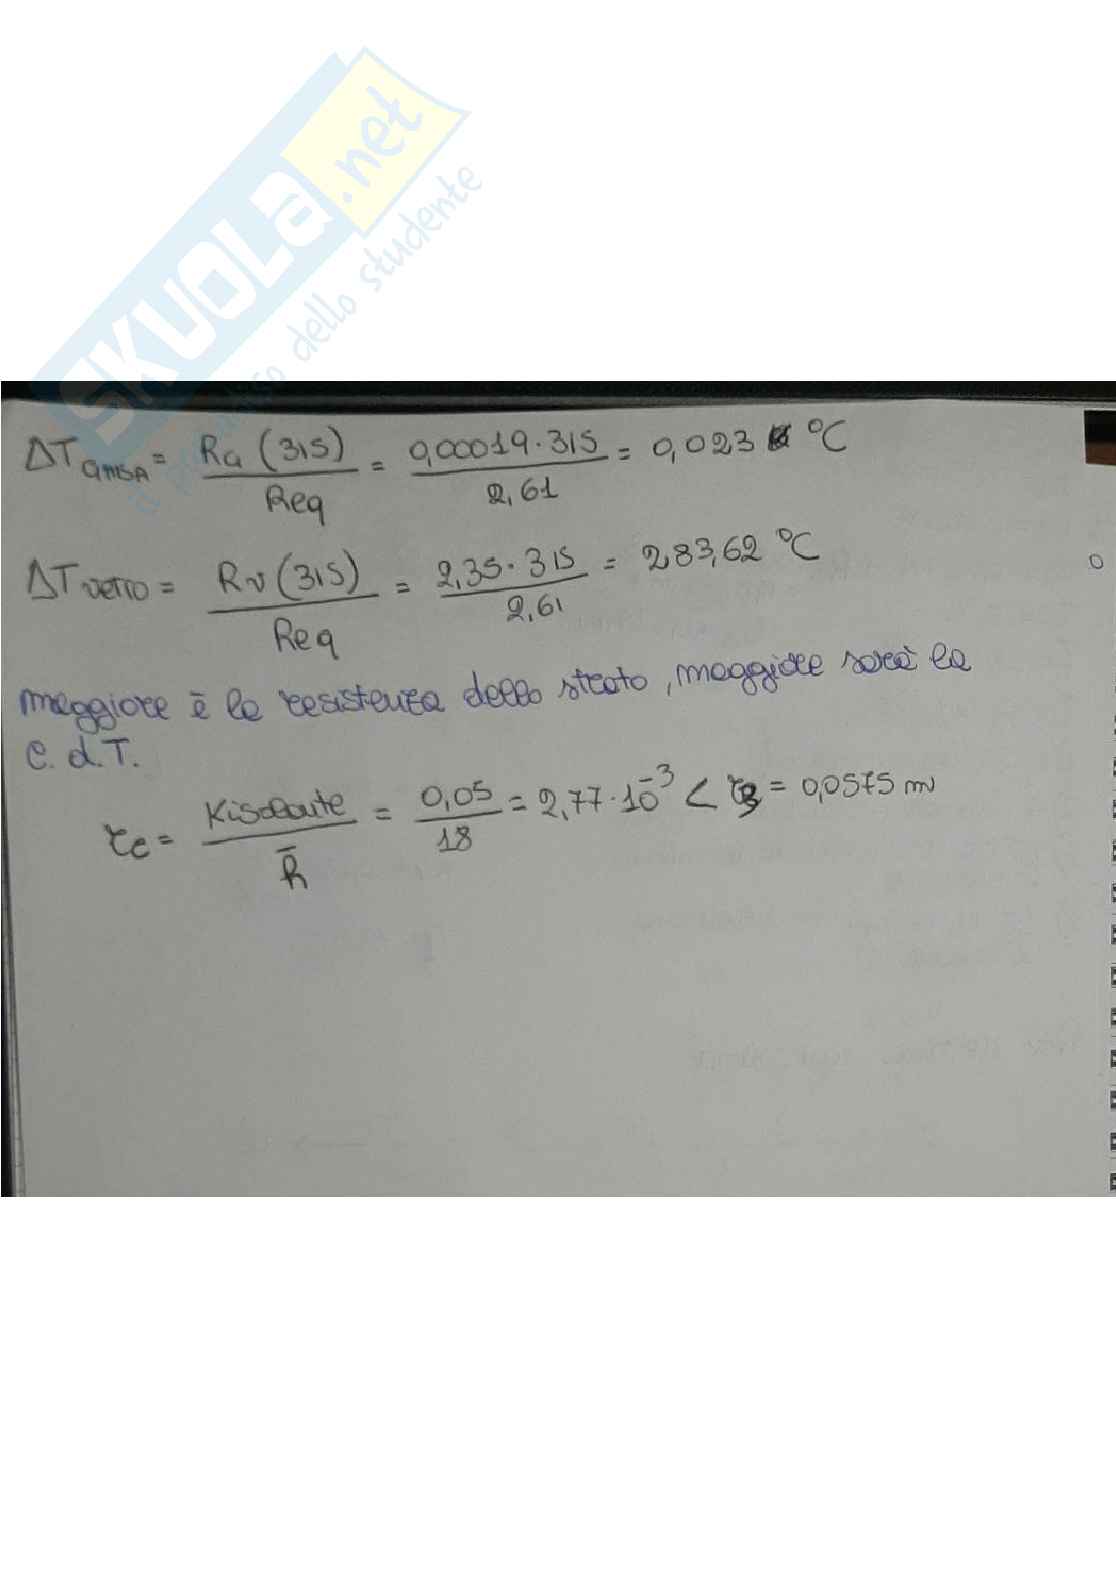 SKUOLA.net
il paradiso dello studente
ΔT ghisa = Ra (315) / Req = 0,00019·315 / 2,61 = 0,023 °C
ΔT vetro = Rv (315) / Req = 2,35·315 / 2,61 = 283,62 °C
maggiore è la resistenza dello strato, maggiore sarà la
c.d.T.
rc = Kisolante / R̄ = 0,05 / 18 = 2,77·10⁻³ < r3 = 0,0575 m